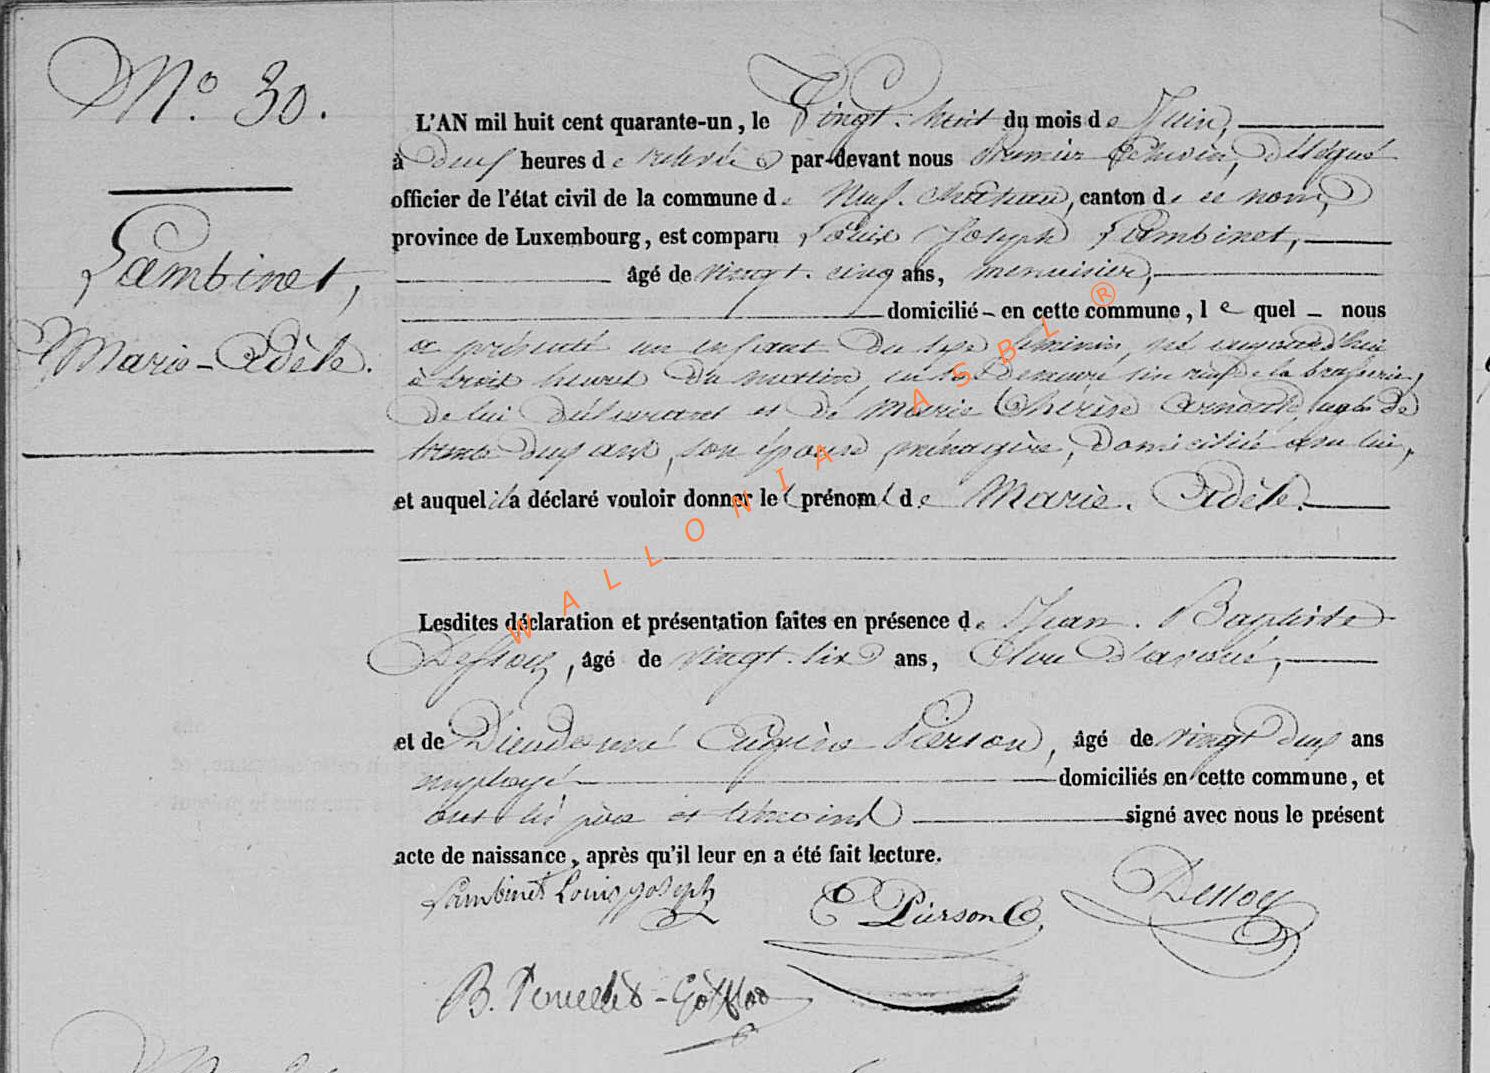 N° 30.
Lambinet,
Marie-Adèle.
L'AN mil huit cent quarante-un, le Vingt-huit du mois de Juin,
à deux heures de relevée par-devant nous Premier Echevin, délégué
officier de l'état civil de la commune de Neuf-château, canton de ce nom,
province de Luxembourg, est comparu Louis Joseph Lambinet,
âgé de vingt-cinq ans, menuisier,
domicilié - en cette commune, lequel - nous
a présenté un enfant du sexe féminin, né aujourd'hui
à trois heures du matin, en sa demeure sise rue de la brasserie,
de lui déclarant et de Marie Thérèse agée de
trente deux ans, son épouse, ménagère, domiciliée avec lui,
et auquel il a déclaré vouloir donner les prénoms de Marie-Adèle.
Lesdites déclaration et présentation faites en présence de Jean-Baptiste
Dessoy, âgé de vingt-six ans, Clerc d'avoué,
et de Dieudonné Eugène Pierson, âgé de vingt deux ans
employé domiciliés en cette commune, et
ont les père et témoins signé avec nous le présent
acte de naissance, après qu'il leur en a été fait lecture.
Lambinet Louis joseph
E Pierson
Dessoy
B.
WALLONIA ASBL ®